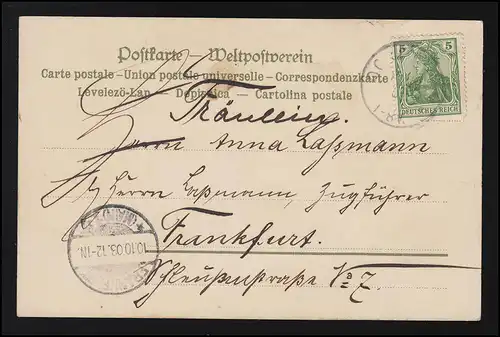 Postkarte – Weltpostverein
Carte postale – Union postale universelle – Correspondenzkarte
Levelezö-Lap – Dopisnica – Cartolina postale
5 5
DEUTSCHES REICH
Fräulein
Herrn Anna Laßmann
Herrn Laßmann, Zugführer
Frankfurt.
Schleußenstraße No 7.
10.10.03. 12-1N.